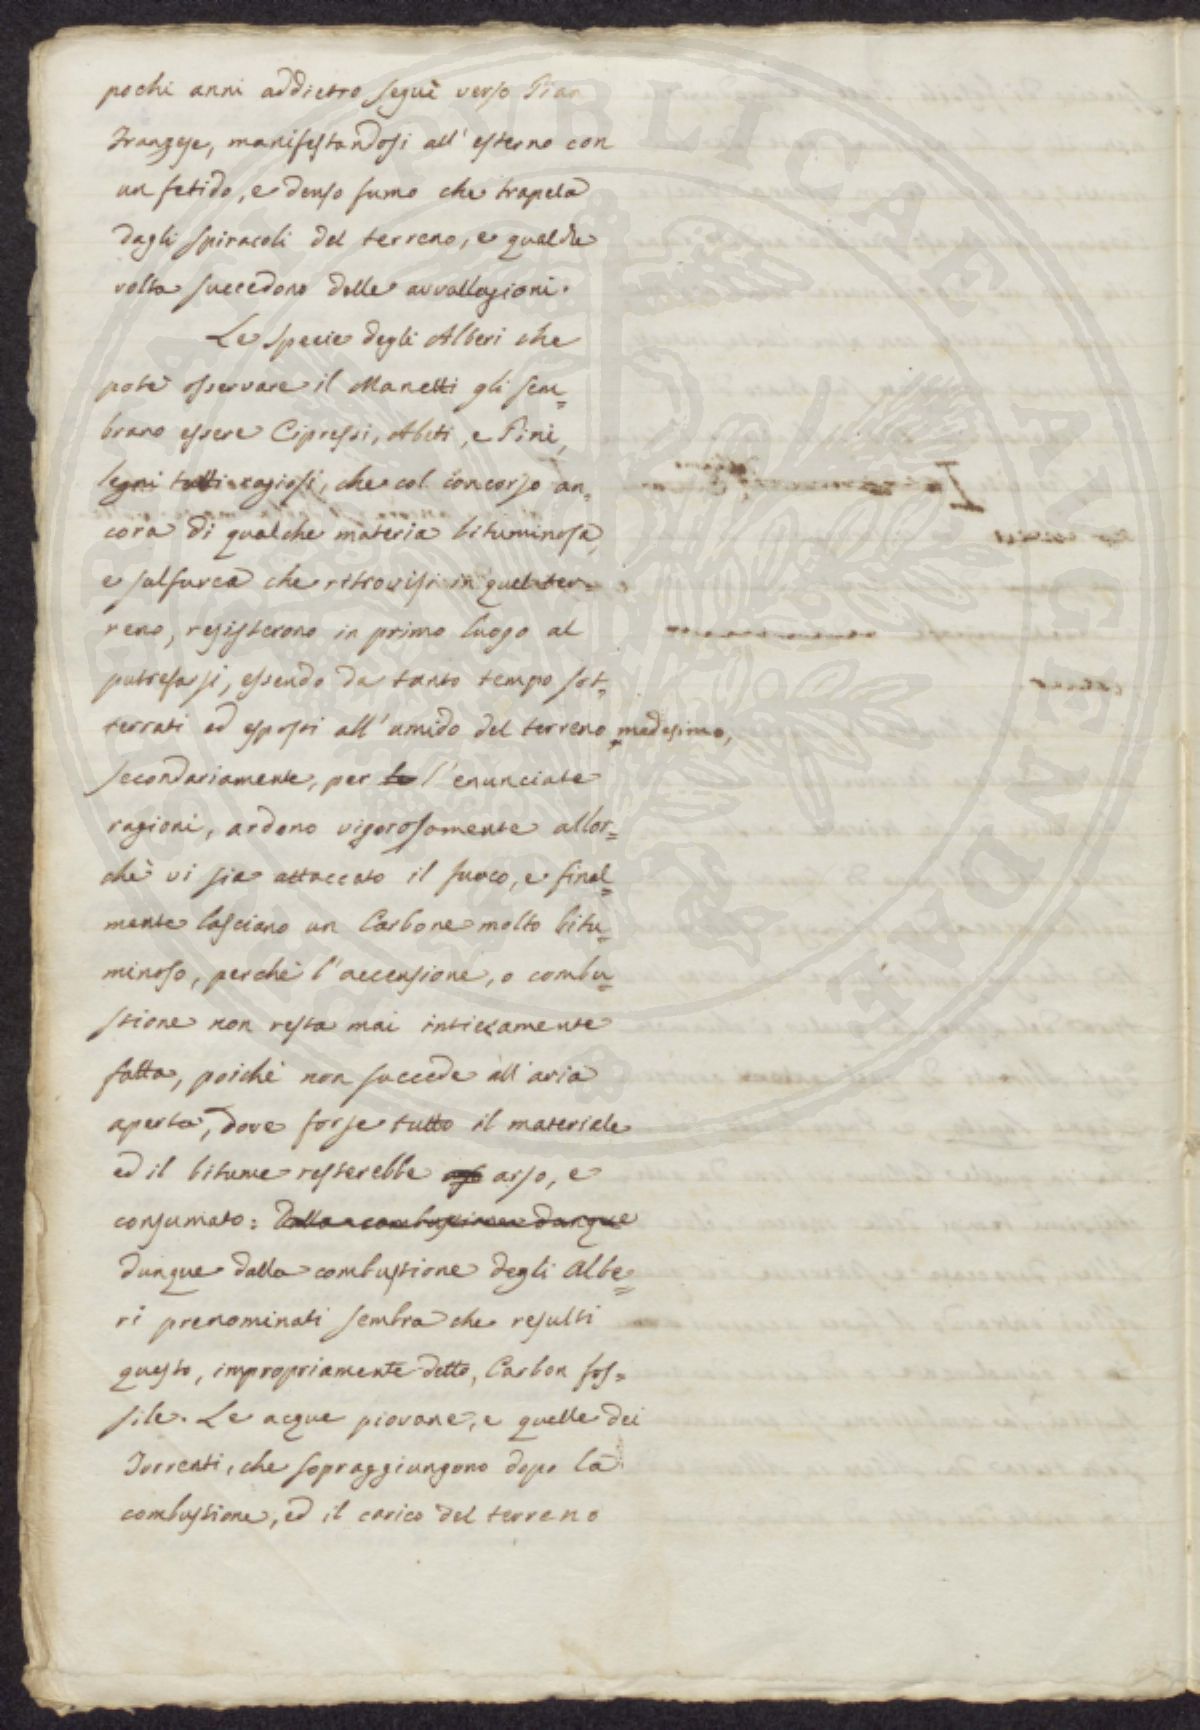 pochi anni addietro seguì verso Pian
Franzese, manifestandosi all'esterno con
un fetido, e denso fumo che trapela
dagli spiracoli del terreno, e qualche
volta succedono delle avvallazioni.
Le specie degli Alberi che
potè osservare il Manetti gli sem=
brano essere Cipressi, Abeti, e Pini,
legni tutti ragiosi, che col concorso an=
cora di qualche materia bituminosa,
e sulfurea che ritrovisi in quel ter=
reno, resisterono in primo luogo al
putrefarsi, essendo da tanto tempo sot=
terrati ed esposti all'umido del terreno medesimo,
secondariamente, per le l'enunciate
ragioni, ardono vigorosamente allor=
chè vi sia attaccato il fuoco, e final=
mente lasciano un Carbone molto bitu=
minoso, perchè l'accensione, o combu=
stione non resta mai intieramente
fatta, poichè non succede all'aria
aperta, dove forse tutto il materiale
ed il bitume resterebbe arso, e
consumato: Dalla combustione dunque
dunque dalla combustione degli Albe=
ri prenominati sembra che resulti
questo, impropriamente detto, Carbon fos=
sile. Le acque piovane, e quelle dei
Torrenti, che sopraggiungono dopo la
combustione, ed il carico del terreno